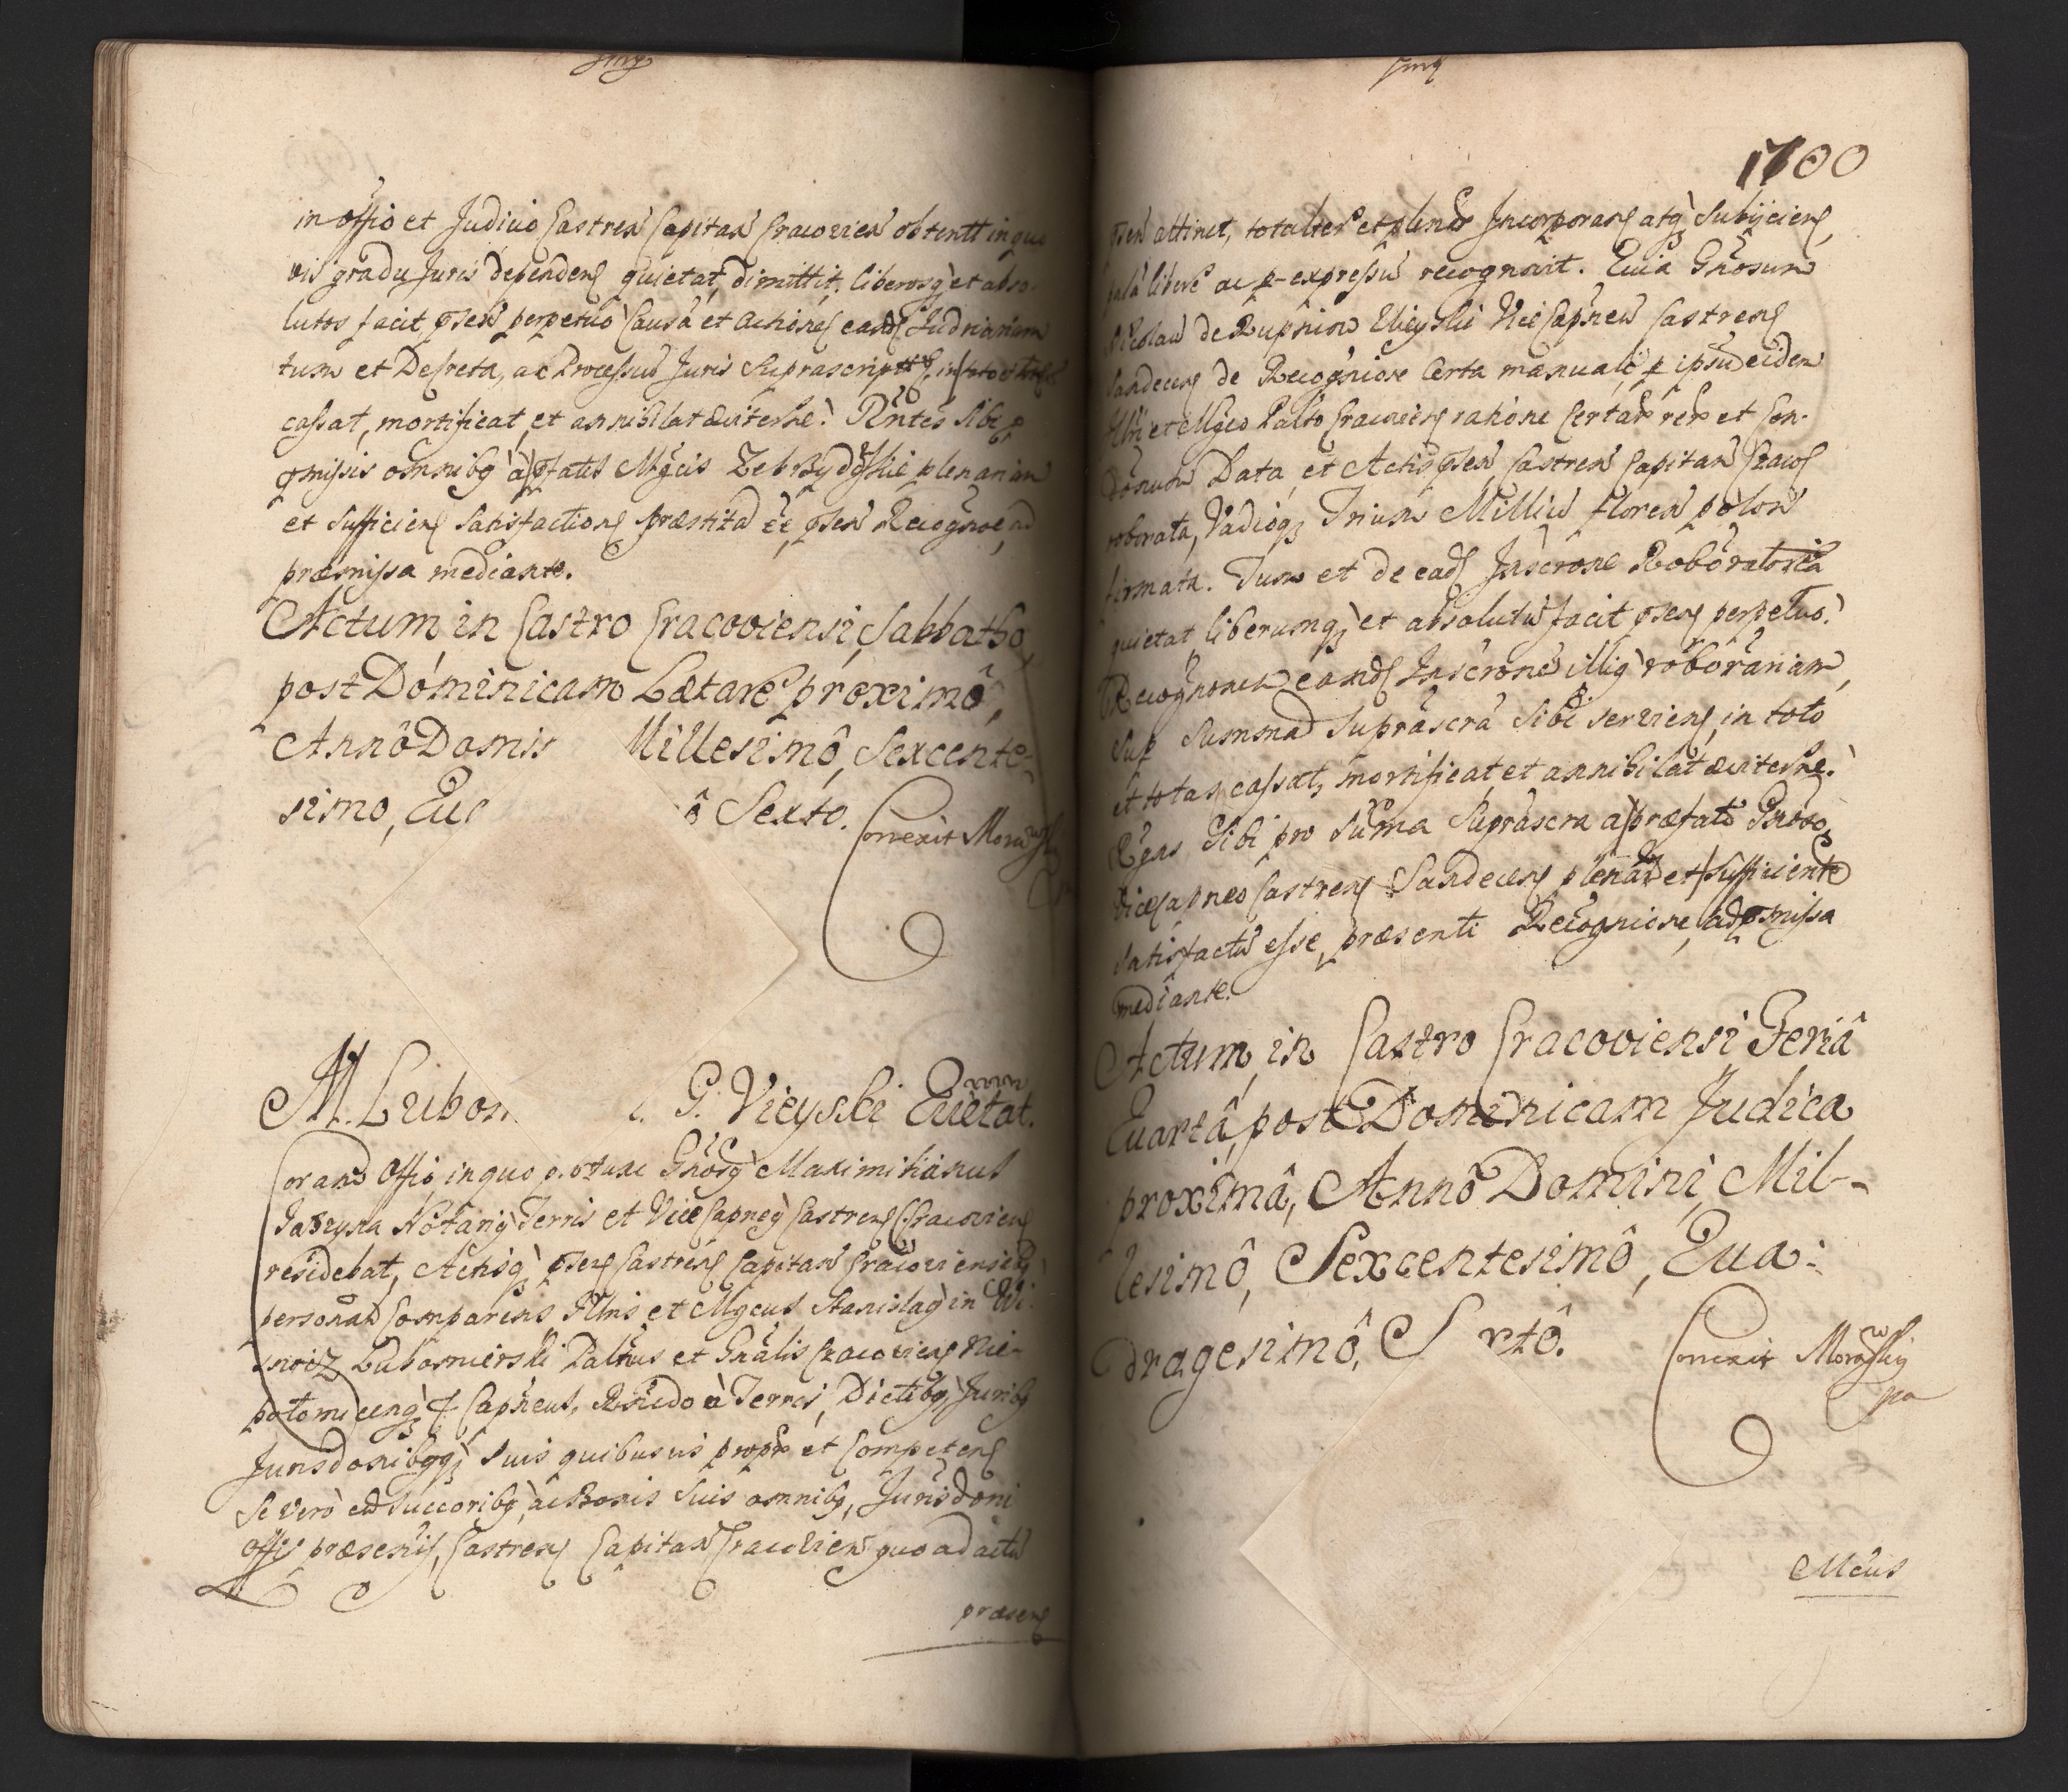 in Offio et Judicio Castren Capitan Cracovien obtent in quo
vis gradu Juris dependen quietat, dimittit, liberosq et abso-
lutos facit psen perpetuo Causa et actiones
tum et Decreta, ac Processus Juris Suprascript in toto
cassat, mortificat, et annihilat æviterne. Rntes Sibi p
pmissis omnibq a pfatis Mgcis Zebrzydoskie plenariam
et Sufficien Satisfaction præstita ee, psen Recognoe, ad
præmissa mediante.
Actum in Castro Cracoviensi, Sabbatho
post Dominicam Lætare proximô,
Annô Domini Millesimô, Sexcente-
simo, Qu ô Sexto. Conexit Moraws
M. Lubom G. Vieyski Quietat.
Coram Offio, in quo p. Gnosq Maximilianus
Jaszyna Notariq Terris et Vice Capneq Castren Cracovien
residebat, Actisq psen Castren Capitan Cracoviensibq
personar Comparens Illris et Mgcus Stanislaq in Wi-
snicz Lubomierski Paltnus et Gnalis Cracovien Nie-
potomicenq Capneus, Rnndo a Terris, Dictibq, Juribq
Jurisdonibqq suis quibusvis propr et Competen
Se vero ed Succoribq, ac Bonis Suis omnibq, Jurisdoni
Offy præsentis, Castren Capitan Cracovien quo ad actu
præsen
1700
psen attinet, totaliter et plenar Incorporans atq Subijcien,
pala libere ac p-expressu recognovit. Quia Gnosum
Nicolau de Rupniow Vieyski Vice Capneu Castren
Sandecen de Recognicione Certa manuali p ipsu eidem
Illri et Mgco Paltno Cracovien ratione Certar rer et Con-
donum Data, et Actis psen Castren Capitan Cracov
roborata, Vadioq Trium Milliu floren polon
firmata. Tum et de ead Inscrone Roboratoria
quietat, liberumq et absolutu facit psen perpetuo.
Recognonem eand Inscrone illiq roborariam,
Sup Summa Suprascra Sibi servien, in toto
et totar cassat, mortificat, et annihilat æviterne.
Rgns Sibi pro Suma Suprascra a præfato Gnoso
Vice Capneo Castren Sandecen plenar et Sufficiente
Satisfactu esse, præsenti Recognicione, ad pmissa
mediante.
Actum in Castro Cracoviensi Feriâ
Quartâ, post Dominicam Judica
proximâ, Annô Domini, Mil-
lesimô, Sexcentesimô, Qua-
dragesimô, S xtô. Conexit Morawskij
pa
Mcus